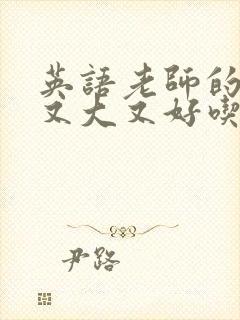 英語老師的
又大又好喫
尹路